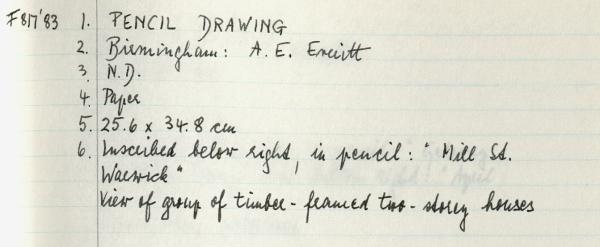 F817'83 1. PENCIL DRAWING
2. Birmingham: A. E. Everitt
3. N.D.
4. Paper
5. 25.6 x 34.8 cm
6. Inscribed below right, in pencil: "Mill St.
Warwick"
View of group of timber-framed two-storey houses